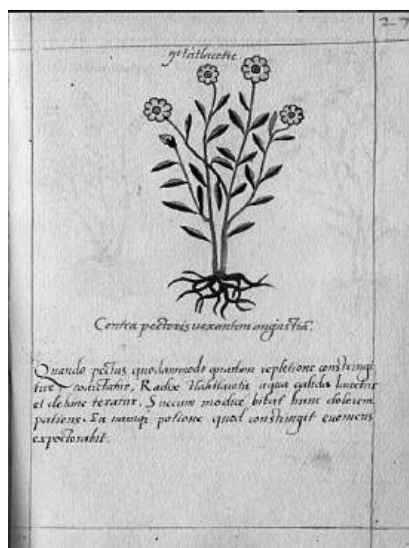 27
Contra pectoris uexantem angustiã.
Quando pectus quodammodo quadam repletione constringi
tur coarctatur, Radix aqua calida lauetur
et deinde teratur. Succum modice bibat hunc dolorem
patiens. Ea namq potione quod constringit euomens
expectorabit.